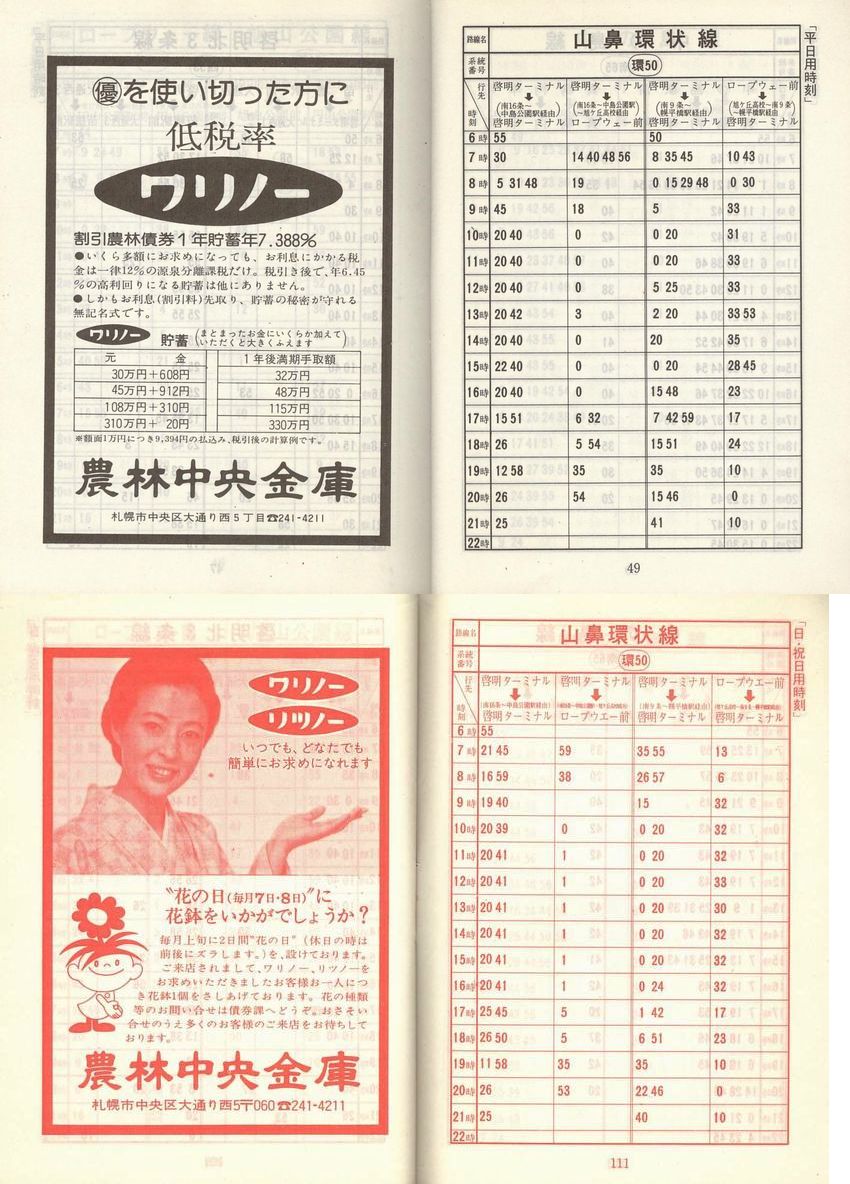 優を使い切った方に
低税率
ワリノー
割引農林債券1年貯蓄年7.388%
●いくら多額にお求めになっても、お利息にかかる税
金は一律12%の源泉分離課税だけ。税引き後で、年6.45
%の高利回りになる貯蓄は他にありません。
●しかもお利息(割引料)先取り、貯蓄の秘密が守れる
無記名式です。
ワリノー 貯蓄 (まとまったお金にいくらか加えていただくと大きくふえます)
元 金 1年後満期手取額
30万円+608円 32万円
45万円+912円 48万円
108万円+310円 115万円
310万円+ 20円 330万円
※額面1万円につき9,394円の払込み、税引後の計算例です。
農林中央金庫
札幌市中央区大通り西5丁目☎241-4211
「平日用時刻」
路線名 山鼻環状線
系統番号 環50
行先 時刻
啓明ターミナル ↓ (南16条〜中島公園駅経由) 啓明ターミナル
啓明ターミナル ↓ (南16条〜中島公園駅〜旭ケ丘高校経由) ロープウェー前
啓明ターミナル ↓ (南9条〜幌平橋駅経由) 啓明ターミナル
ロープウェー前 ↓ (旭ケ丘高校〜南9条〜幌平橋駅経由) 啓明ターミナル
6時 55 50
7時 30 14 40 48 56 8 35 45 10 43
8時 5 31 48 19 0 15 29 48 0 30
9時 45 18 5 33
10時 20 40 0 0 20 31
11時 20 40 0 0 20 33
12時 20 40 0 5 25 33
13時 20 42 3 2 20 33 53
14時 20 40 0 20 35
15時 22 40 0 0 20 28 45
16時 20 40 0 15 48 23
17時 15 51 6 32 7 42 59 17
18時 26 5 54 15 51 24
19時 12 58 35 35 10
20時 26 54 15 46 0
21時 25 41 10
22時
49
ワリノー
リツノー
いつでも、どなたでも
簡単にお求めになれます
"花の日(毎月7日・8日)"に
花鉢をいかがでしょうか?
毎月上旬に2日間"花の日"(休日の時は
前後にズラします。)を、設けております。
ご来店されまして、ワリノー、リツノーを
お求めいただきましたお客様お一人につ
き花鉢1個をさしあげております。花の種類
等のお問い合せは債券課へどうぞ。おさそい
合せのうえ多くのお客様のご来店をお待ちして
おります。
農林中央金庫
札幌市中央区大通り西5〒060☎241-4211
「日・祝日用時刻」
路線名 山鼻環状線
系統番号 環50
行先 時刻
啓明ターミナル ↓ (南16条〜中島公園駅経由) 啓明ターミナル
啓明ターミナル ↓ ロープウエー前
啓明ターミナル ↓ (南9条〜幌平橋駅経由) 啓明ターミナル
ロープウエー前 ↓ 啓明ターミナル
6時 55
7時 21 45 59 35 55 13
8時 16 59 38 26 57 6
9時 19 40 15 32
10時 20 39 0 0 20 32
11時 20 41 1 0 20 32
12時 20 41 1 0 20 33
13時 20 41 1 0 20 30
14時 20 41 1 0 20 32
15時 20 41 1 0 20 32
16時 20 41 1 0 24 32
17時 25 45 5 1 42 17
18時 26 50 5 6 51 23
19時 11 58 35 35 10
20時 26 53 22 46 0
21時 25 40 10
22時
111